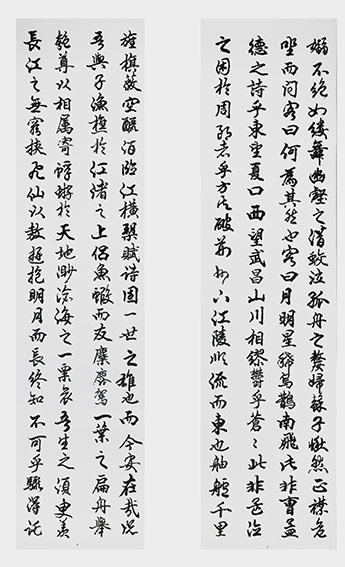 嫋不絕如縷舞幽壑之潛蛟泣孤舟之嫠婦蘇子愀然正襟危
坐而問客曰何為其然也客曰月明星稀烏鵲南飛此非曹孟
德之詩乎東望夏口西望武昌山川相繆鬱乎蒼々此非孟德
之困於周郎者乎方其破荊州下江陵順流而東也舳艫千里
旌旗蔽空釃酒臨江橫槊賦詩固一世之雄也而今安在哉況
吾與子漁樵於江渚之上侶魚蝦而友麋鹿駕一葉之扁舟舉
匏尊以相屬寄蜉蝣於天地渺滄海之一粟哀吾生之須臾羨
長江之無窮挾飛仙以遨遊抱明月而長終知不可乎驟得託